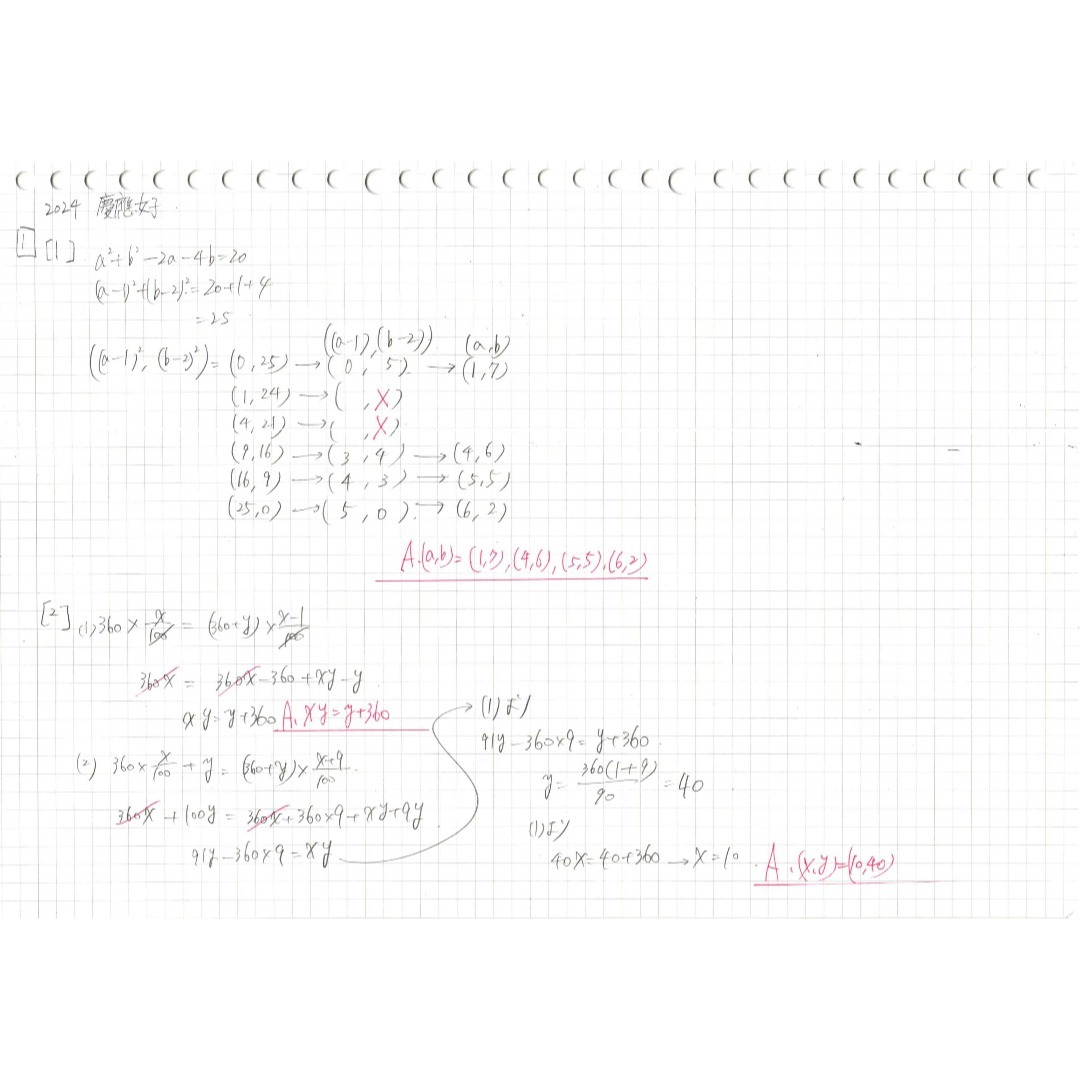 2024 慶應女子
1 [1] a²+b²-2a-4b=20
(a-1)²+(b-2)²=20+1+4
=25
((a-1),(b-2)) (a,b)
((a-1)², (b-2)²)=(0,25)→(0, 5)→(1,7)
(1,24)→( ,X)
(4,21)→( ,X)
(9,16)→(3,4)→(4,6)
(16,9)→(4,3)→(5,5)
(25,0)→(5,0)→(6,2)
A.(a,b)=(1,7),(4,6),(5,5),(6,2)
[2] (1) 360×x/100=(360+y)×x-1/100
360x=360x-360+xy-y
xy=y+360 A. xy=y+360
(2) 360×x/100+y=(360+y)×x+9/100
360x+100y=360x+360×9+xy+9y
91y-360×9=xy
(1)より
91y-360×9=y+360
y=360(1+9)/90=40
(1)より
40x=40+360→x=10
A.(x,y)=(10,40)